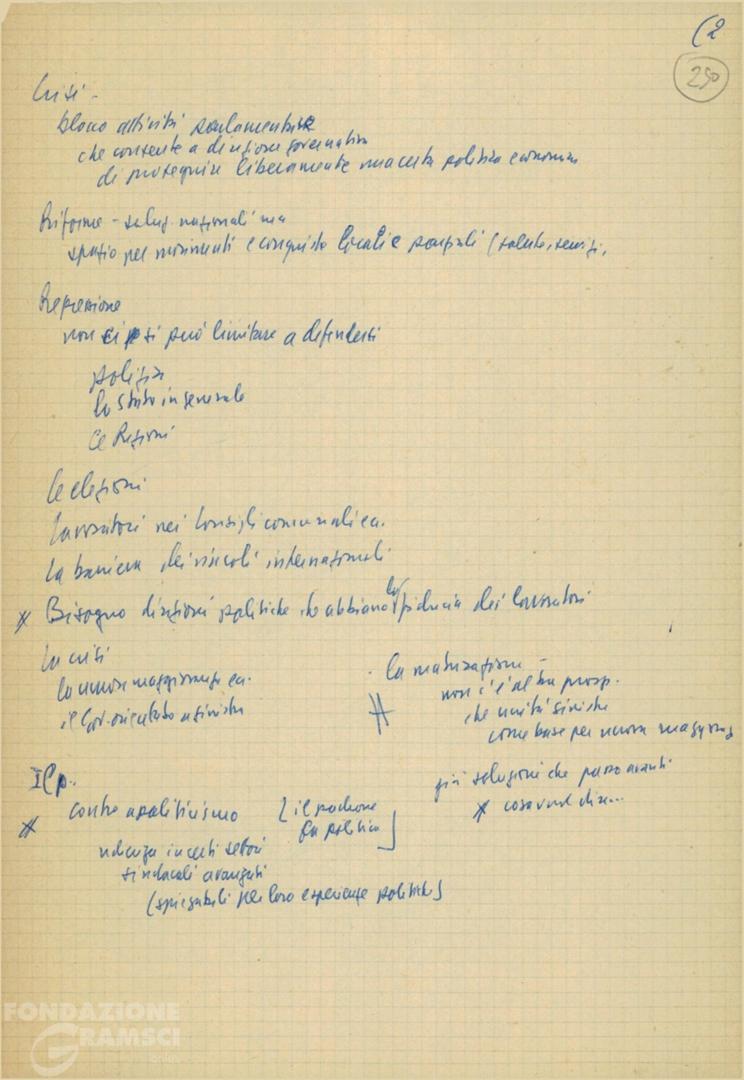 (2
250
Crisi -
blocco attività parlamentare
che consente a direzione governativa
di proseguire liberamente una certa politica economica
Riforme - soluz. nazionali ma
spazio per movimenti e conquiste locali e parziali (salute, servizi,
Repressione
non si può limitare a difendersi
polizia
lo Stato in generale
le Regioni
le elezioni
lavoratori nei Consigli comunali ca.
la barriera dei vincoli internazionali
Bisogno direzioni politiche che abbiano la fiducia dei lavoratori
la crisi
la nuova maggioranza ea.
il Gov. orientato a sinistra
la maturazione -
non c'è altra prosp.
che unità sinistre
come base per nuova maggioranz
più soluzioni che passo avanti
cosa vuol dire...
Il p..
contro apoliticismo
[il padrone
fa politica]
in certi settori
sindacali avanzati
(spiegabili per loro esperienze politiche)
FONDAZIONE
GRAMSCI